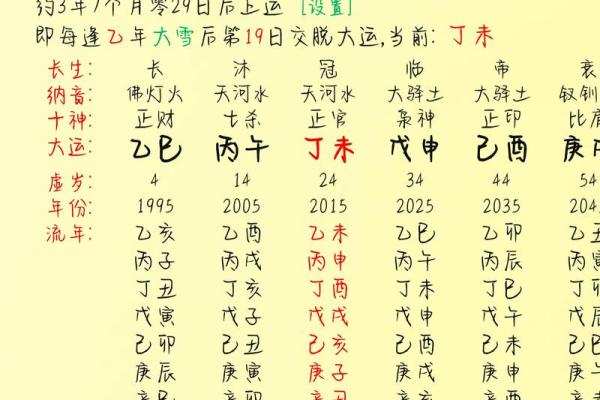 约3年7个月零29日后上运 [设置]
即每逢乙年大雪后第19日交脱大运,当前: 丁未
长生: 长 沐 冠 临 帝 衰
纳音: 佛灯火 天河水 天河水 大驿土 大驿土 钗钏
十神: 正财 七杀 正官 枭神 正印 比肩
大运: 乙巳 丙午 丁未 戊申 己酉 庚戌
虚岁: 4 14 24 34 44 54
年份: 1995 2005 2015 2025 2035 204
流年: 乙亥 乙酉 乙未 乙巳 乙卯 乙丑
丙子 丙戌 丙申 丙午 丙辰 丙寅
丁丑 丁亥 丁酉 丁未 丁巳 丁卯
戊寅 戊子 戊戌 戊申 戊午 戊辰
己卯 己丑 己亥 己酉 己未 己巳
庚辰 庚寅 庚子 庚戌 庚申 庚午
辛巳 辛卯 辛丑 辛亥 辛酉 辛未